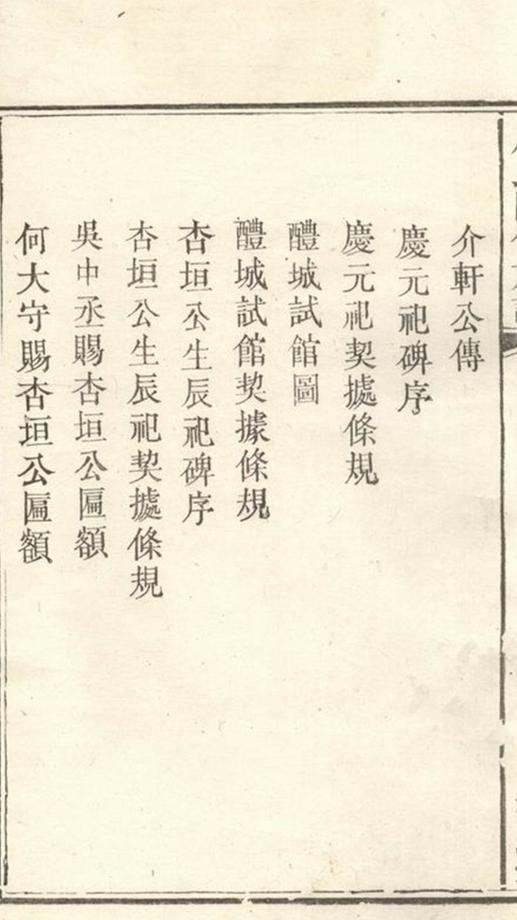 介軒公傳
慶元祀碑序
慶元祀契㨿條規
醴城試館圖
醴城試館契據條規
杏垣公生辰祀碑序
杏垣公生辰祀契㨿條規
吳中丞賜杏垣公匾額
何大守賜杏垣公匾額